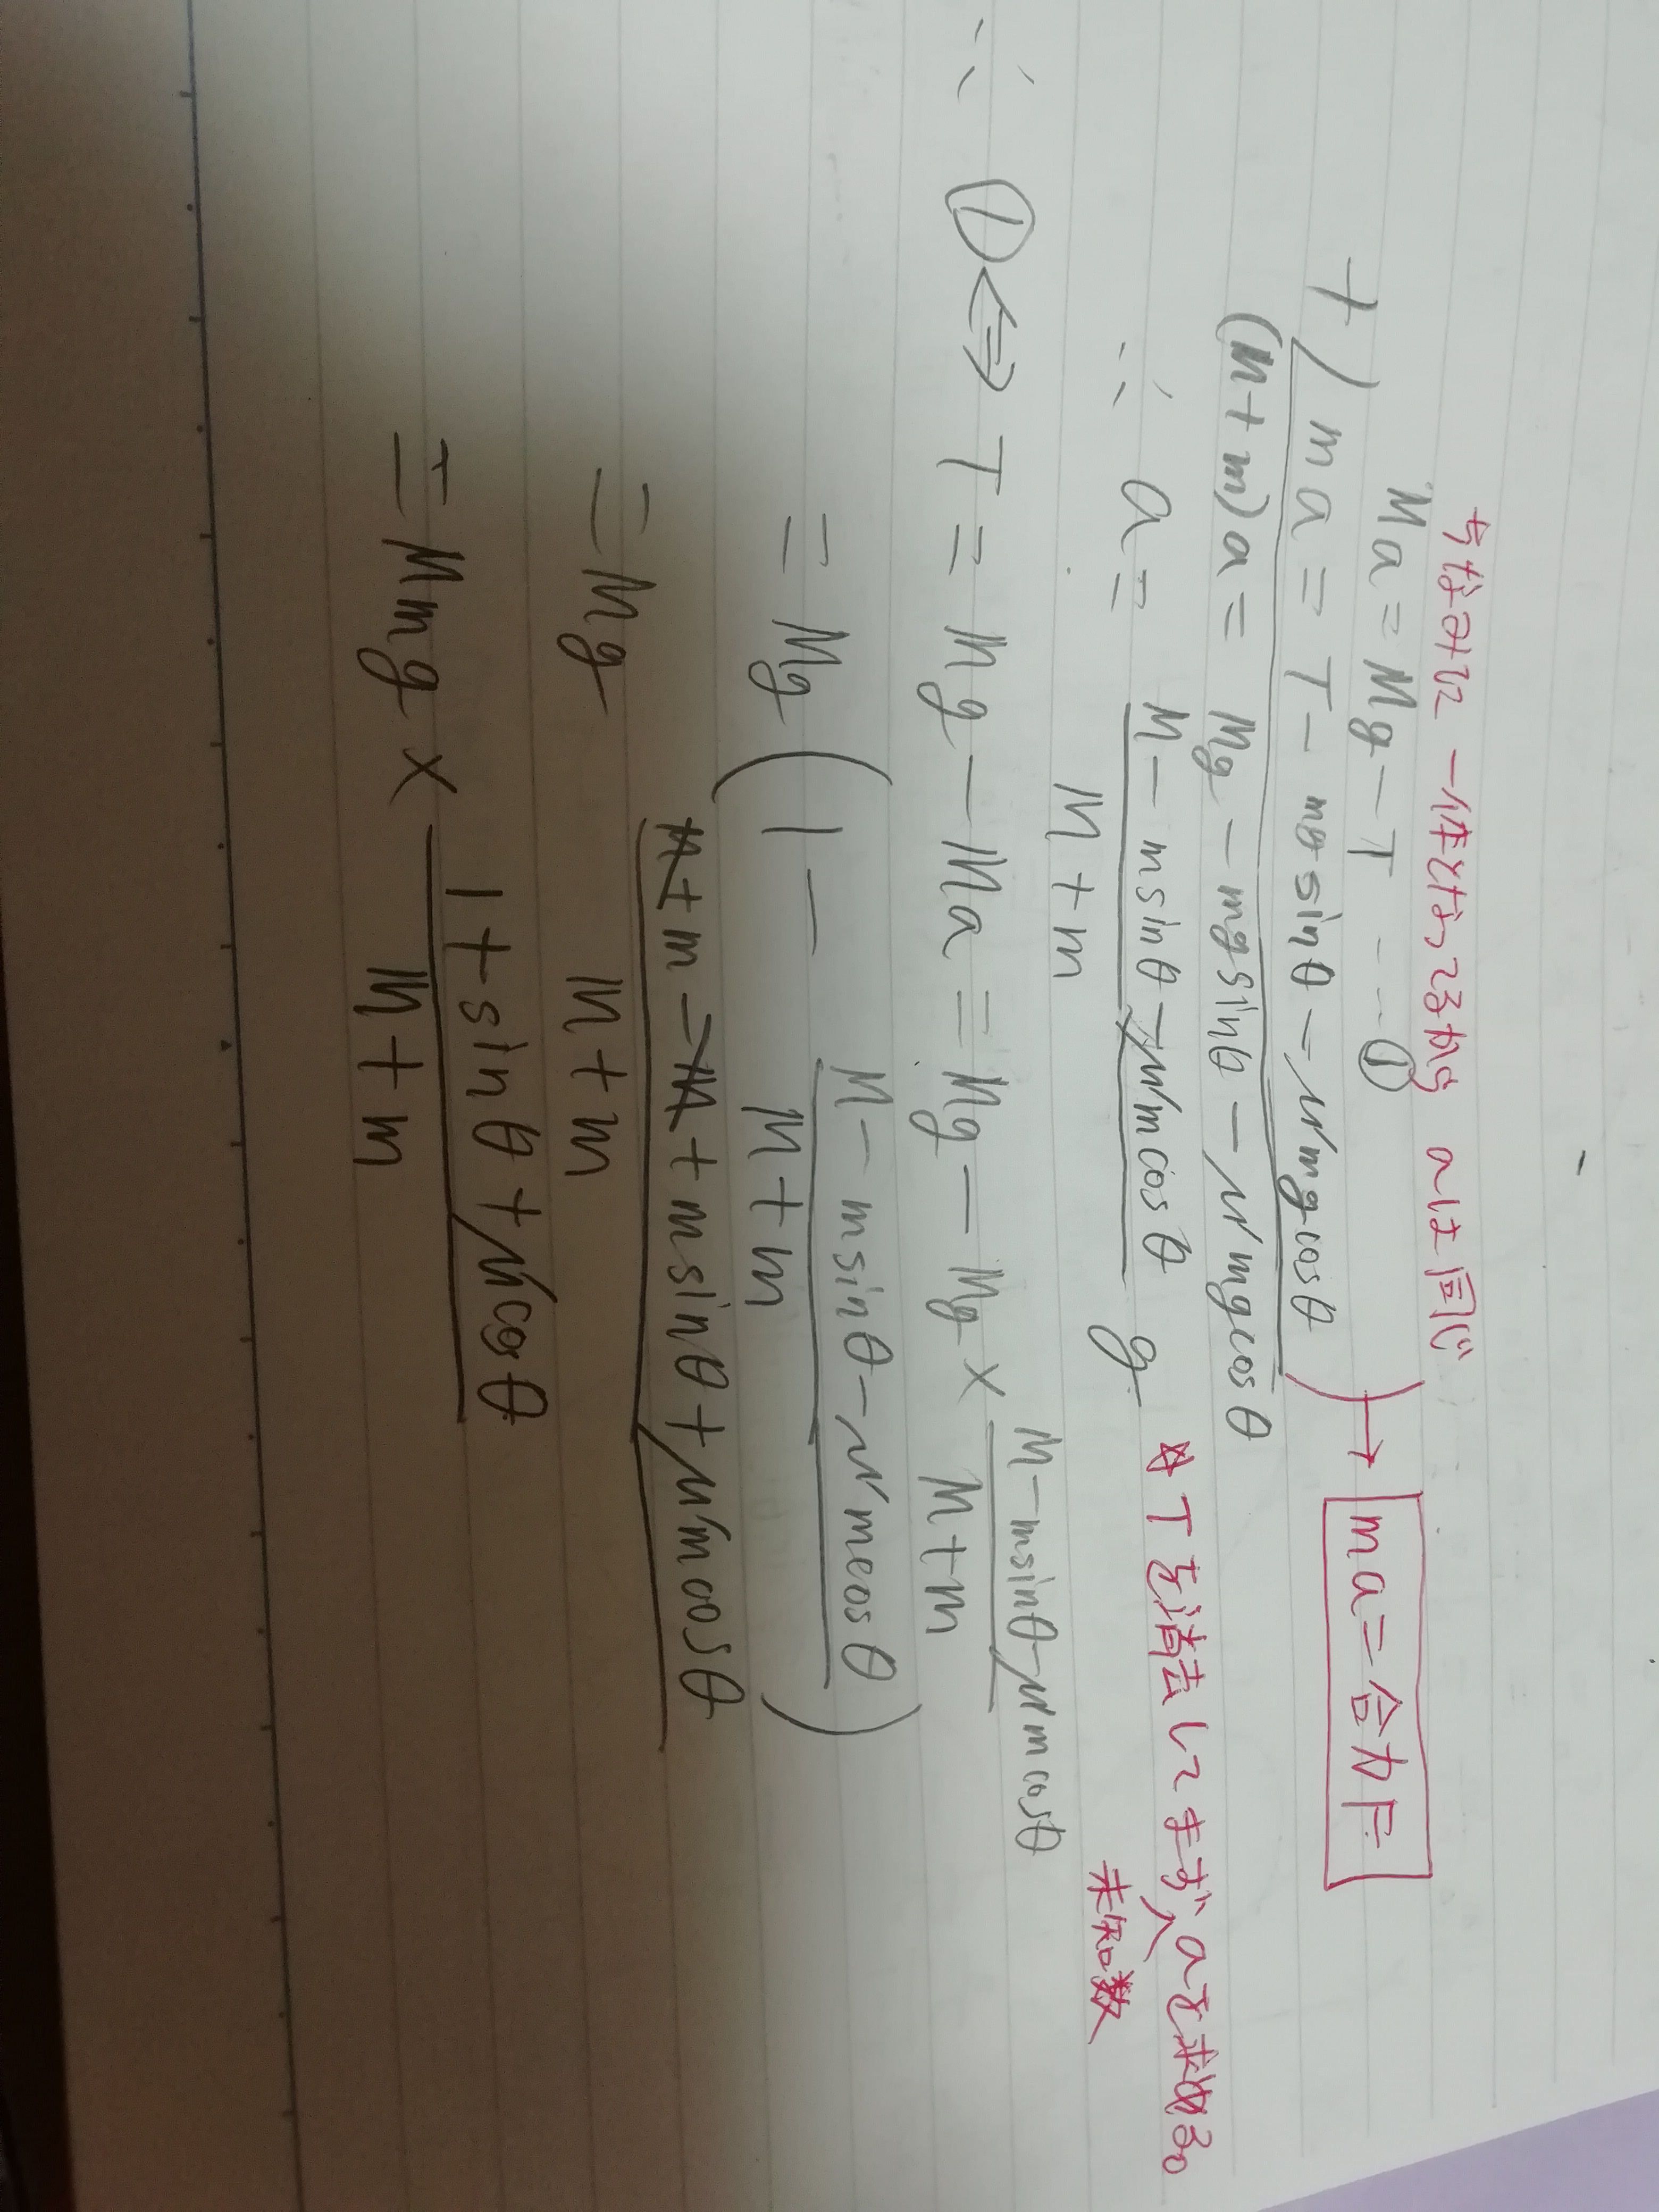 ちなみに一体となってるから aは同じ
Ma = Mg - T … ①
+) ma = T - mg sinθ - μ'mg cosθ → ma = 合力F
(M+m)a = Mg - mg sinθ - μ'mg cosθ
∴ a = (M - m sinθ - μ'm cosθ)/(M+m) g ※Tを消去してまず、aを求める。
未知数
∴ ① ⇔ T = Mg - Ma = Mg - Mg × (M - m sinθ - μ'm cosθ)/(M+m)
= Mg (1 - (M - m sinθ - μ'm cosθ)/(M+m))
= Mg (M + m - M + m sinθ + μ'm cosθ)/(M+m)
= Mmg × (1 + sinθ + μ'cosθ)/(M+m)